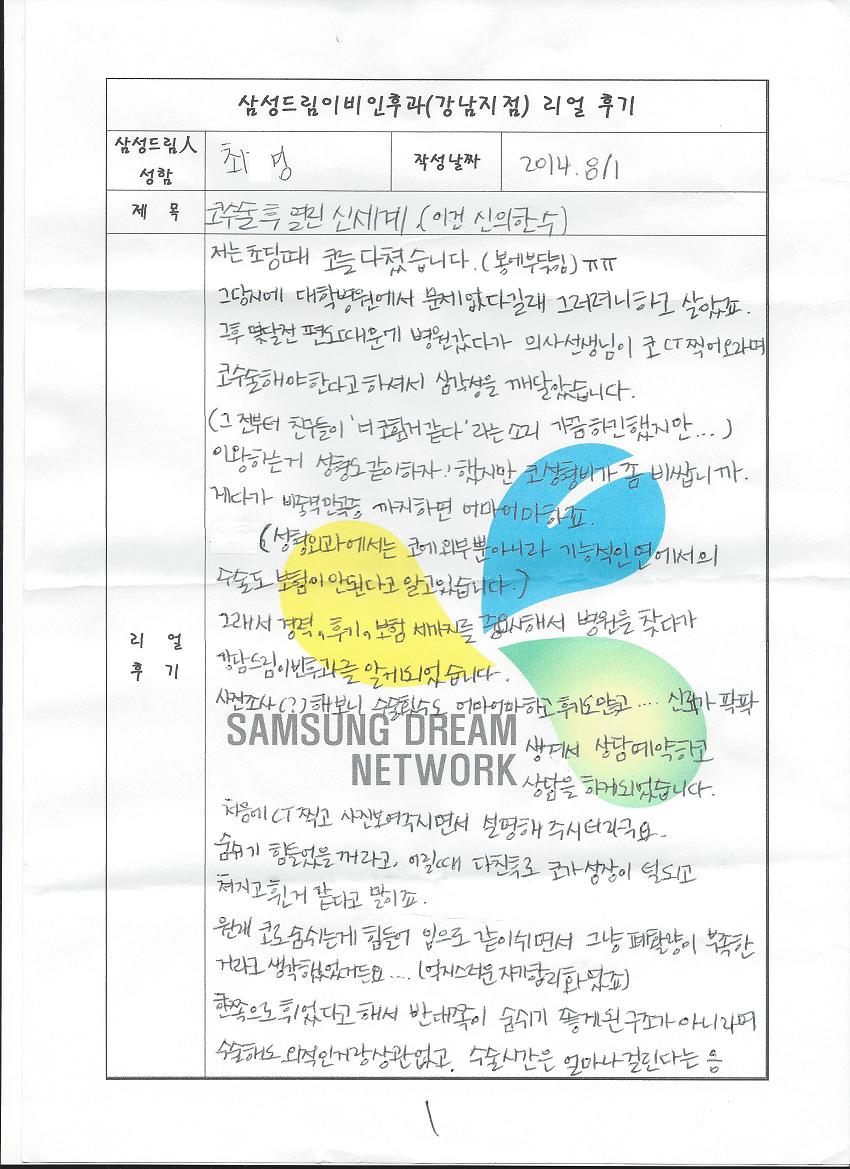 삼성드림이비인후과(강남지점) 리얼 후기
삼성드림人 성함
최 명
작성날짜
2014. 8/1
제 목
코수술 후 열린 신세계. (이건 신의한수)
리 얼
후 기
저는 초딩때 코를 다쳤습니다. (봉에부딪힘) ㅠㅠ
그당시에 대학병원에서 문제없다길래 그러려니하고 살았죠.
그후 몇달전 편도때문에 병원갔다가 의사선생님이 코 CT 찍어오라며
코수술해야한다고 하셔서 심각성을 깨달았습니다.
(그 전부터 친구들이 '너 코휜거같다' 라는 소리 가끔하긴했지만...)
이왕하는거 성형도 같이하자! 했지만 코성형비가 좀 비쌉니까.
게다가 비중격만곡증 까지하면 어마어마하죠.
(성형외과에서는 코에 외부뿐아니라 기능적인면에서의
수술도 보험이 안된다고 알고있습니다.)
그래서 경력, 후기, 보험 세가지를 중요시해서 병원을 찾다가
강남드림이빈후과를 알게되었습니다.
사전조사(?) 해보니 수술횟수도 어마어마하고 후기도많고 .... 신뢰가 팍팍
생겨서 상담예약하고
상담을 하게되었습니다.
SAMSUNG DREAM
NETWORK
처음에 CT 찍고 사진보여주시면서 설명해 주시더라구요.
숨쉬기 힘들었을 꺼라고, 어릴때 다친후로 코가 성장이 덜되고
쳐지고 휜거 같다고 말이죠.
원래 코로 숨쉬는게 힘들어 입으로 같이쉬면서 그냥 폐활량이 부족한
거라고 생각했었거든요.... (억지스러운 자기합리화였죠)
한쪽으로 휘었다고 해서 반대쪽이 숨쉬기 좋게된 구조가 아니라며
수술해도 외적인거랑 상관없고, 수술시간은 얼마나 걸린다는 등
1